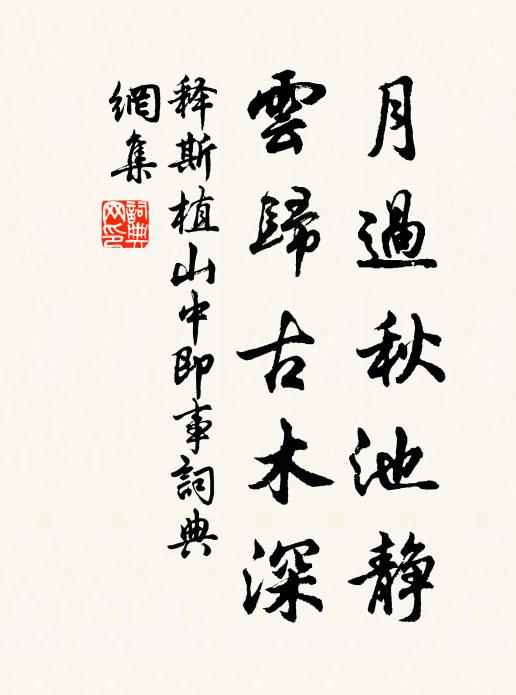 月過秋池静
雲歸古木深
释斯植山中即事詞典
網集
詞典網印